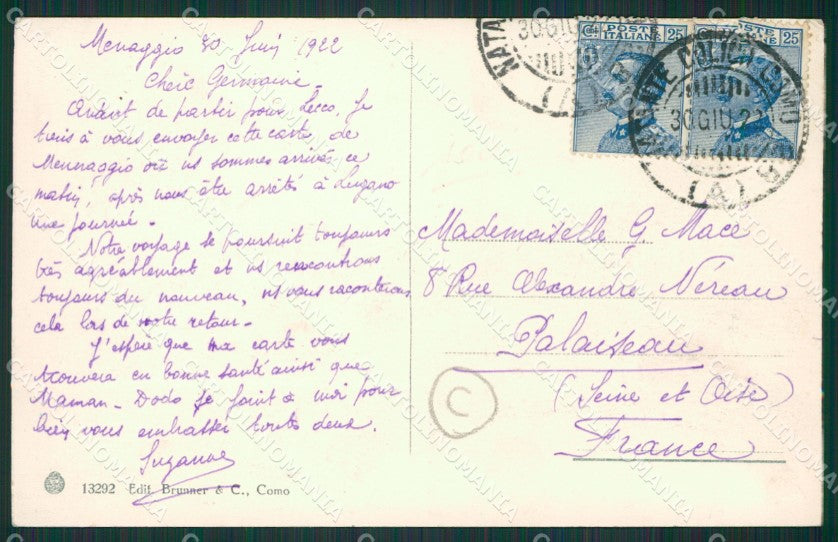 Menaggio 30 Juin 1922
Chère Germaine.
Avant de partir pour Lecco, je
tiens à vous envoyer cette carte de
Menaggio où ns sommes arrivés ce
matin, après nous être arrêtés à Lugano
une journée.
Notre voyage se poursuit toujours
très agréablement et ns rencontrons
toujours du nouveau, ns vous raconterons
cela lors de notre retour.
J'espère que ma carte vous
trouvera en bonne santé ainsi que
Maman. Dodo se joint à moi pour
bien vous embrasser toutes deux.
Suzanne
13292 Edit. Brunner & C., Como
POSTE ITALIANE 25
POSTE ITALIANE 25
NATA
30 GIU
(A)
COLICO-COMO
30 GIU. 22
(A)
Mademoiselle G. Macé
8 Rue Alexandre Néreau
Palaiseau
(Seine et Oise)
France
C
CARTOLINOMANIA